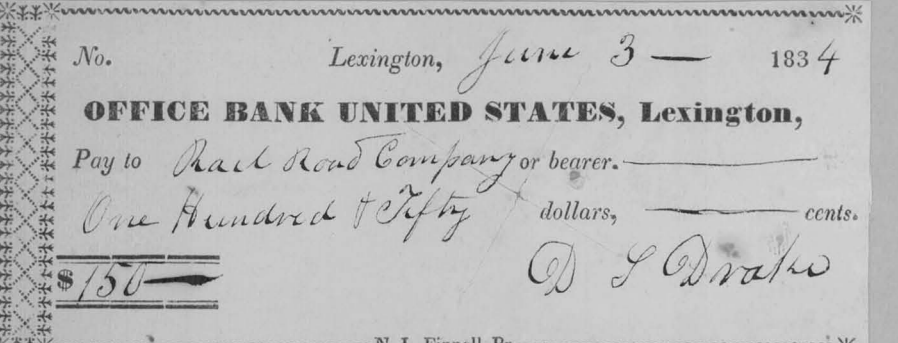 No. Lexington, June 3 — 1834
OFFICE BANK UNITED STATES, Lexington,
Pay to Rail Road Company or bearer.
One Hundred & Fifty dollars, cents.
$150
D S Drake